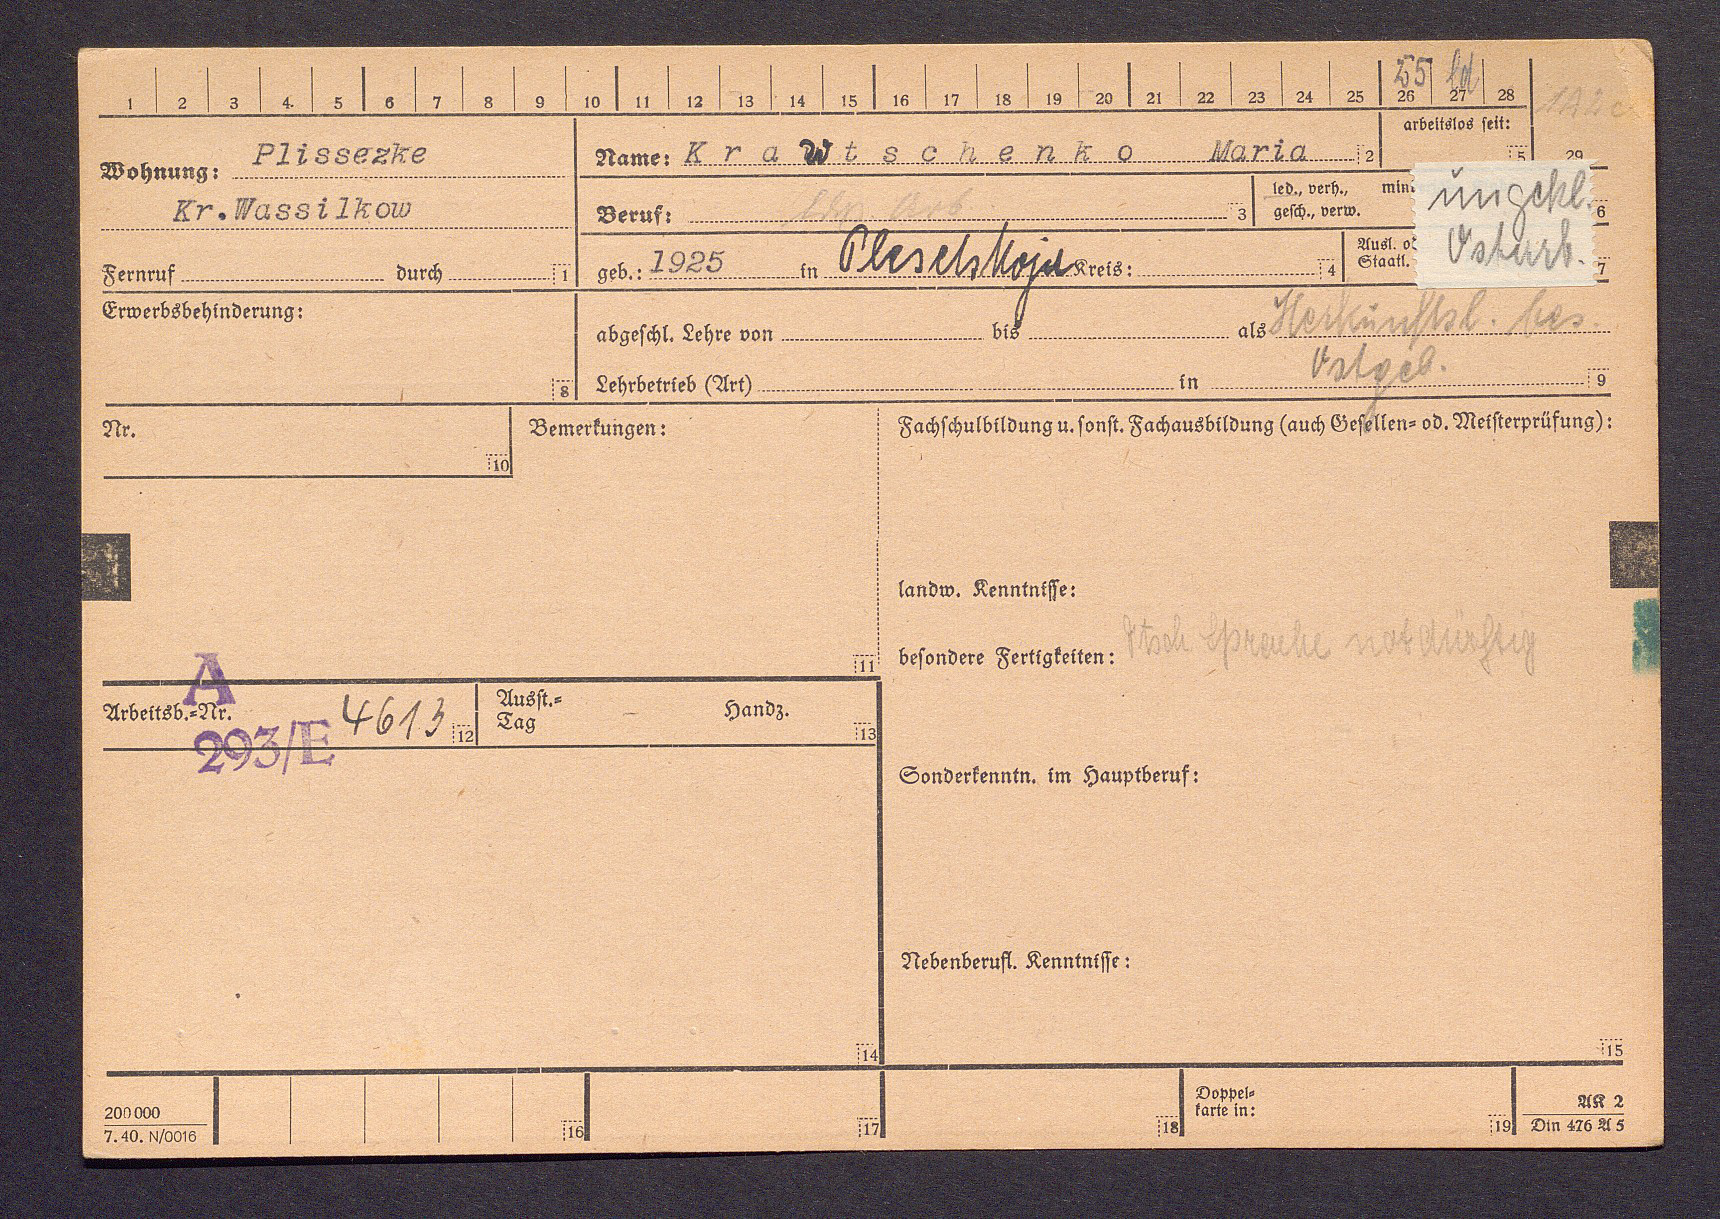 1 2 3 4. 5 6 7 8 9 10 11 12 13 14 15 16 17 18 19 20 21 22 23 24 25 26 27 28
55
Wohnung: Plissezke
Kr.Wassilkow
Fernruf durch 1
Name: Krawtschenko Maria 2
arbeitslos seit: 5 29
Beruf: 3
led., verh., gesch., verw.
6
geb.: 1925 in Plesetskoje Kreis: 4
Ausl.
Staatl.
7
ungekl.
Ostarb.
Erwerbsbehinderung: 8
abgeschl. Lehre von bis als Herkunftsl. bes.
Ostgeb.
Lehrbetrieb (Art) in 9
Nr. 10
Bemerkungen: 11
Fachschulbildung u. sonst. Fachausbildung (auch Gesellen= od. Meisterprüfung):
landw. Kenntnisse:
besondere Fertigkeiten: dtsch Sprache notdürftig
A
Arbeitsb.=Nr. 4613 12
293/E
Ausst.=
Tag – Handz. 13
Sonderkenntn. im Hauptberuf:
Nebenberufl. Kenntnisse:
14 15
200 000
7. 40. N/0016
16 17 18
Doppel=
karte in: 19
AK 2
Din 476 A 5